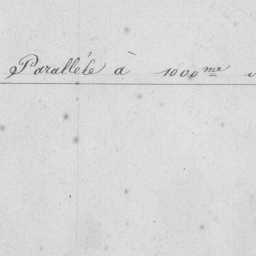 Parallèle à 1000 me